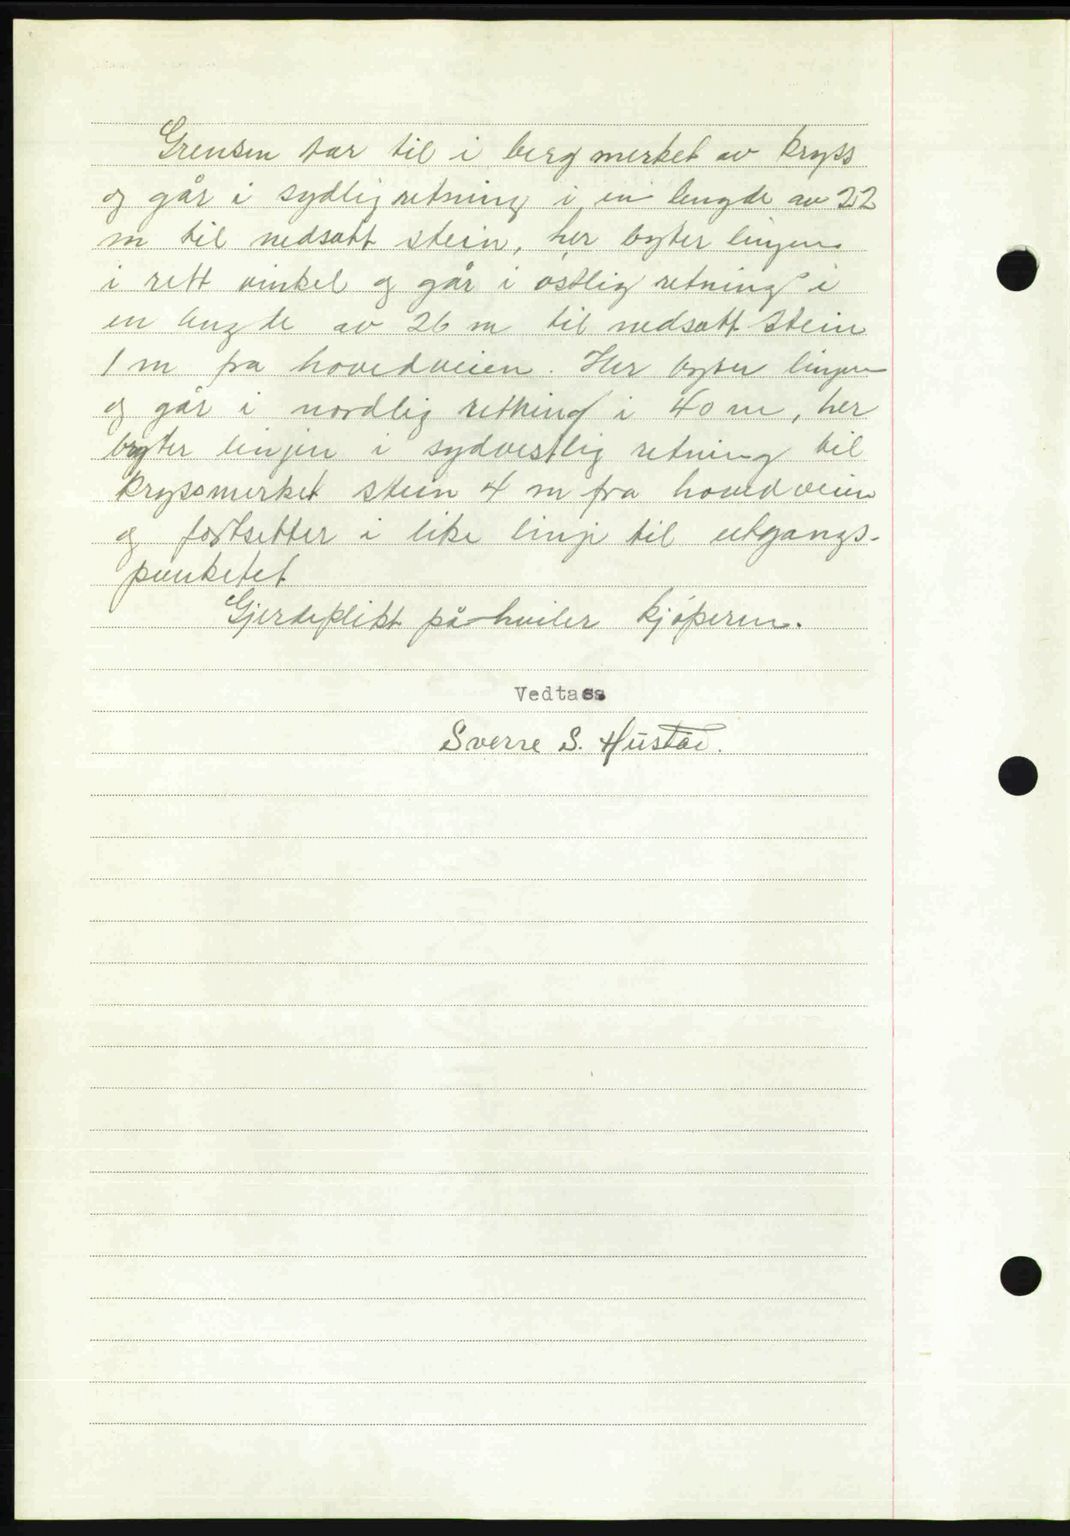 Grensen tar til i berg merket av kryss
og går i sydlig retning i en lengde av 22
m til nedsatt stein, her bryter linjen
i rett vinkel og går i østlig retning i
en lengde av 26 m til nedsatt stein
1 m fra hovedveien. Her bryter linjen
og går i nordlig retning i 40 m, her
bryter linjen i sydvestlig retning til
kryssmerket stein 4 m fra hovedveien
og fortsetter i like linje til utgangs-
punketet
Gjerdeplikt påhviler kjøperen.
Vedtass
Sverre S. Hustad.